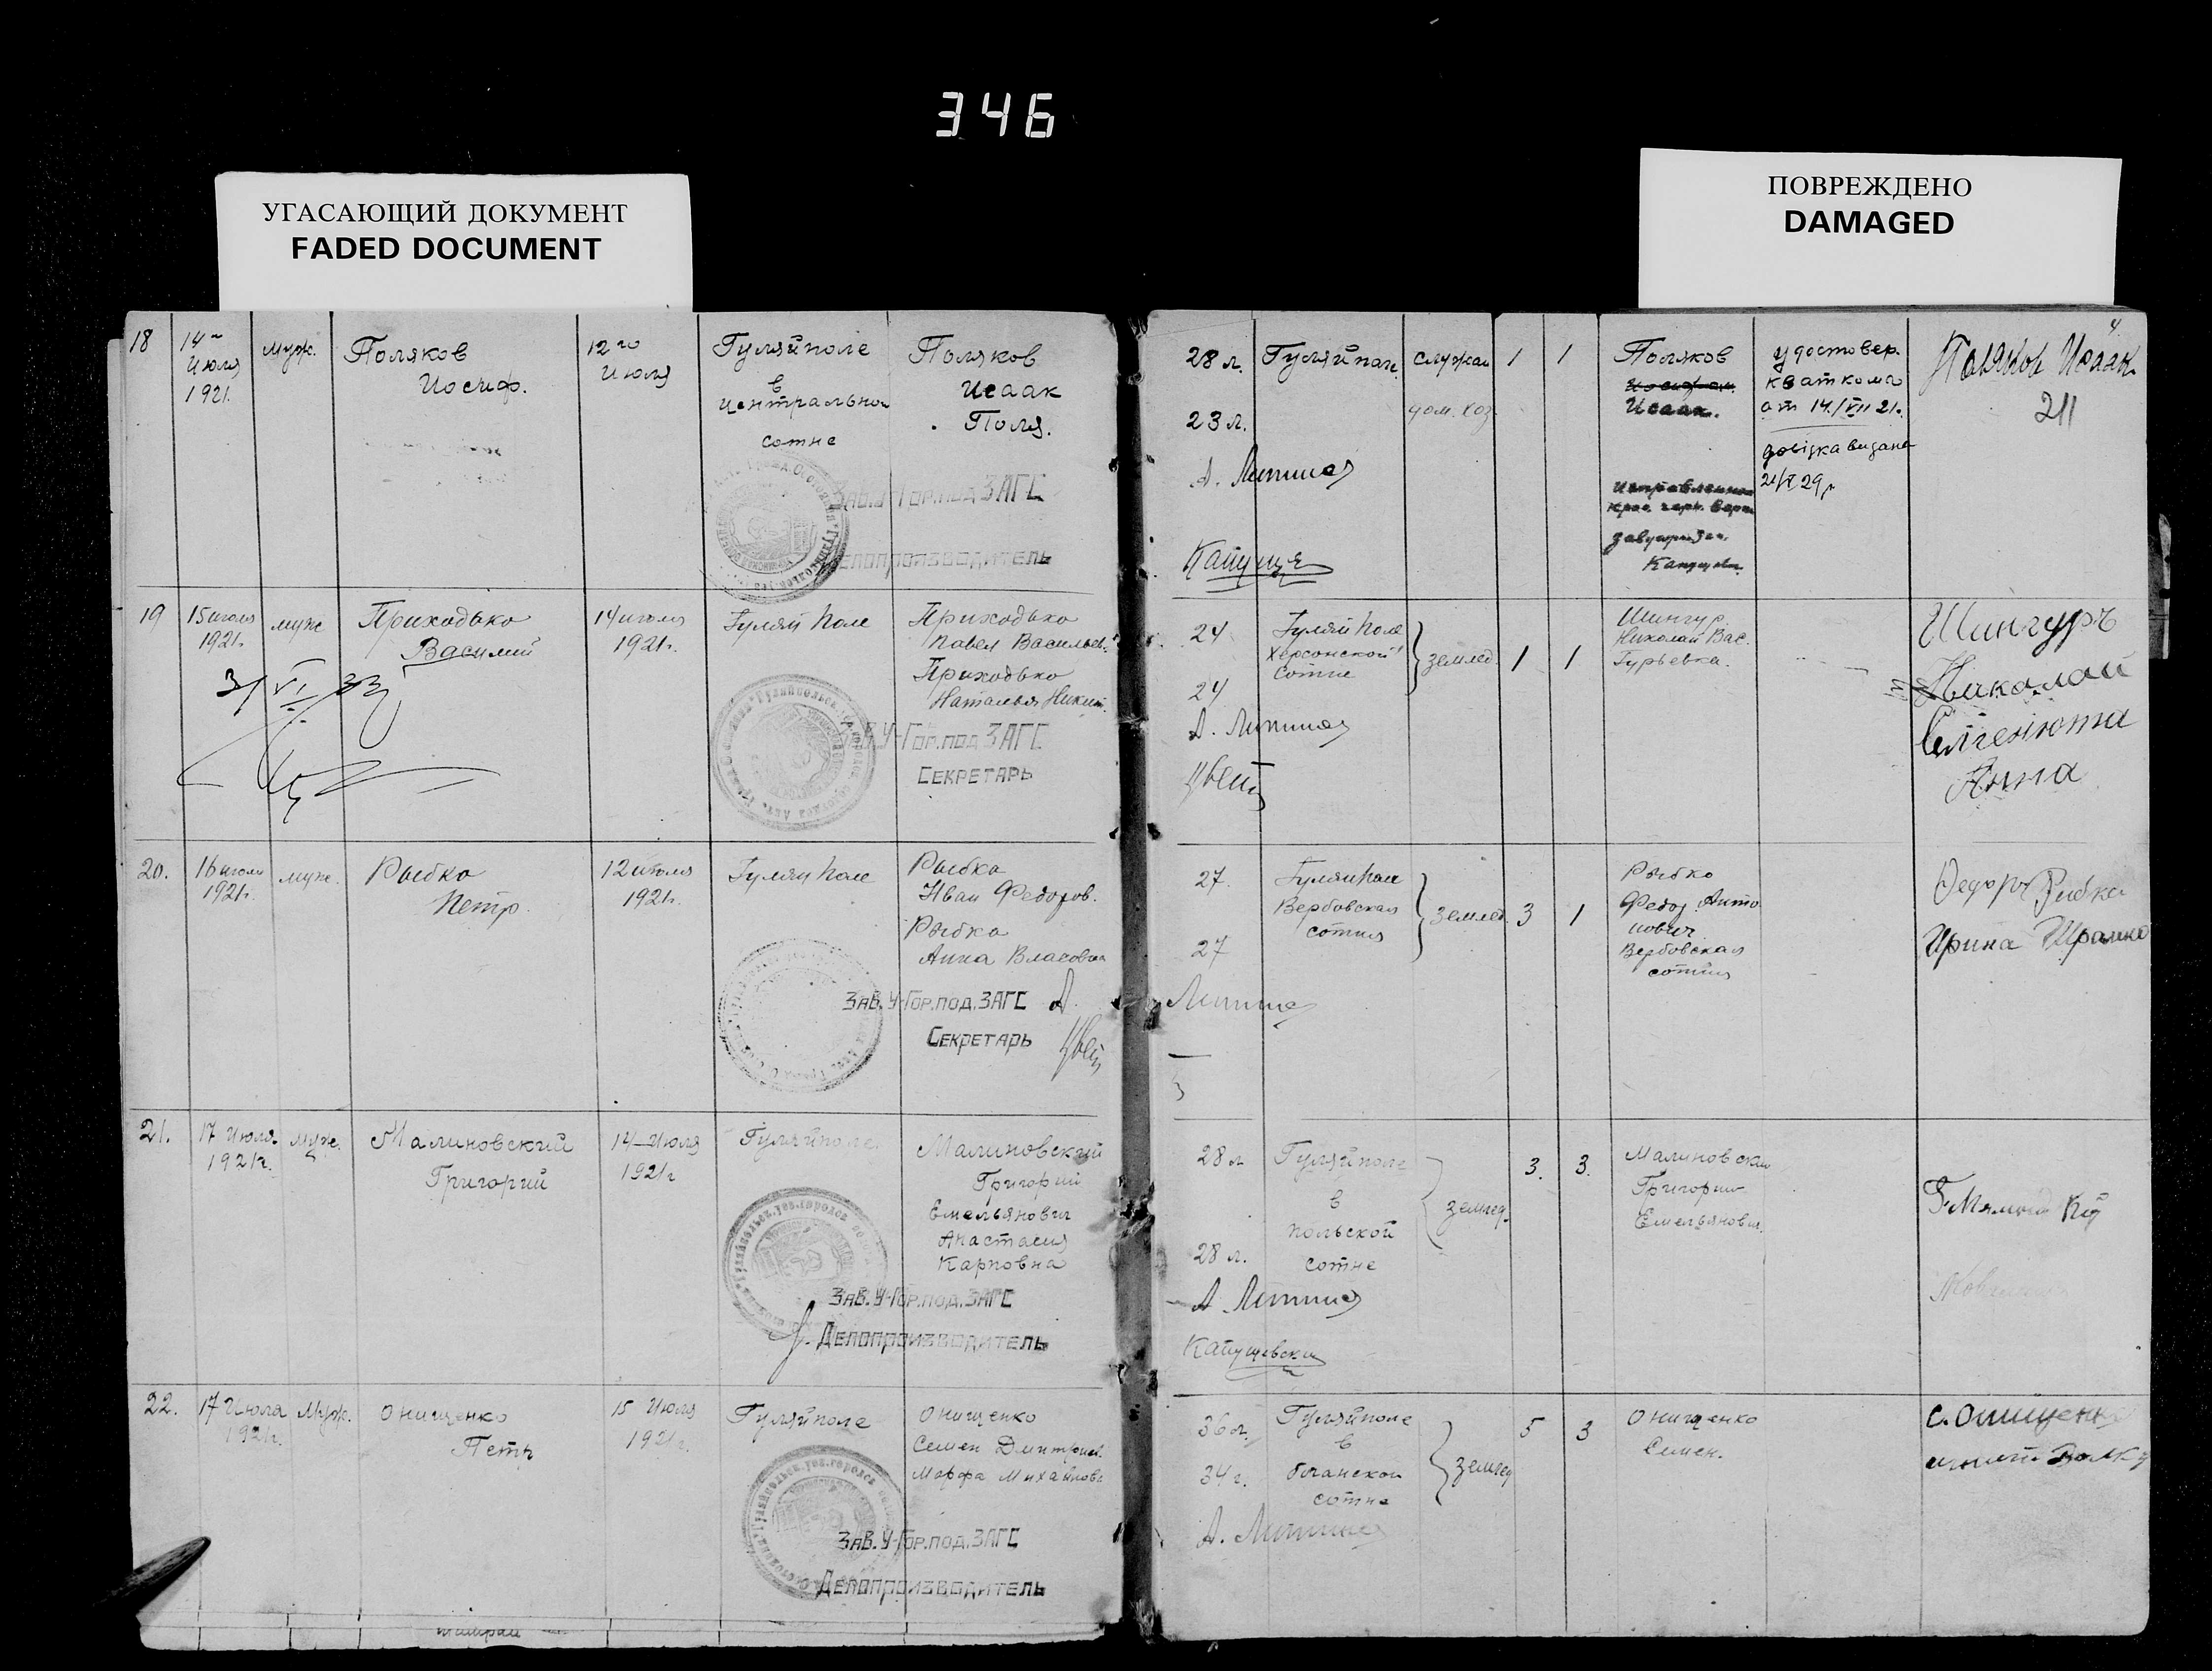 346
УГАСАЮЩИЙ ДОКУМЕНТ
FADED DOCUMENT
ПОВРЕЖДЕНО
DAMAGED
18
14го
Июля
1921.
муж.
Поляков
Иосиф.
12го
Июля
Гуляйполе
в
центральной
сотне
Поляков
Исаак
Поля.
Зав.У-Гор.под ЗАГС
Делопроизводитель
28 л.
23 л.
Гуляйпол.
служащ
дом. хоз.
1
1
Поляков
Исаак.
удостовер.
кваткома
от 14/VII 21.
довідка видана
21/V 29 р
Поляков Исаак
211
4
19
15 июля
1921г.
муж
Приходько
Василий
3/VI 33
14 июля
1921г.
Гуляй Поле
Приходько
Павел Васильев.
Приходько
Наталья Никит.
Зав.У-Гор.под ЗАГС
Секретарь
24
24
Гуляй Поле
Херсонской
сотне
землед.
1
1
Шингур.
Николай Вас.
Гурьевка.
Шингуръ
Николай
Семенюта
Анна
20.
16 июля
1921г.
муж.
Рыбка
Петр.
12 июля
1921г.
Гуляй Поле
Рыбка
Иван Федоров.
Рыбка
Анна Власовна
Зав.У-Гор.под.ЗАГС
Секретарь
27.
27
Гуляй Поле
Вербовская
сотня
землед.
3
1
Рыбко
Федор. Анто
нович
Вербовская
сотня
Федоръ Рибка
Ирина
21.
17 Июля.
1921г.
муж.
Малиновский
Григорий
14 Июля
1921г
Гуляйполе
Малиновский
Григорий
Емельянович
Анастасия
Карповна
Зав.У-Гор.под.ЗАГС
Делопроизводитель
28 л
28 л.
Гуляйполе
в
польской
сотне
землед.
3.
3.
Малиновский
Григорий
Емельянович
Капущевский
22.
17 Июля
1921г.
Муж.
Онищенко
Петр
15 Июля
1921г.
Гуляйполе
Онищенко
Семен Дмитриев.
Марфа Михайловн
Зав.У-Гор.под.ЗАГС
Делопроизводитель
36 л.
34 г.
Гуляйполе
в
сотне
землед
5
3
Онищенко
Семен.
С. Онищенко